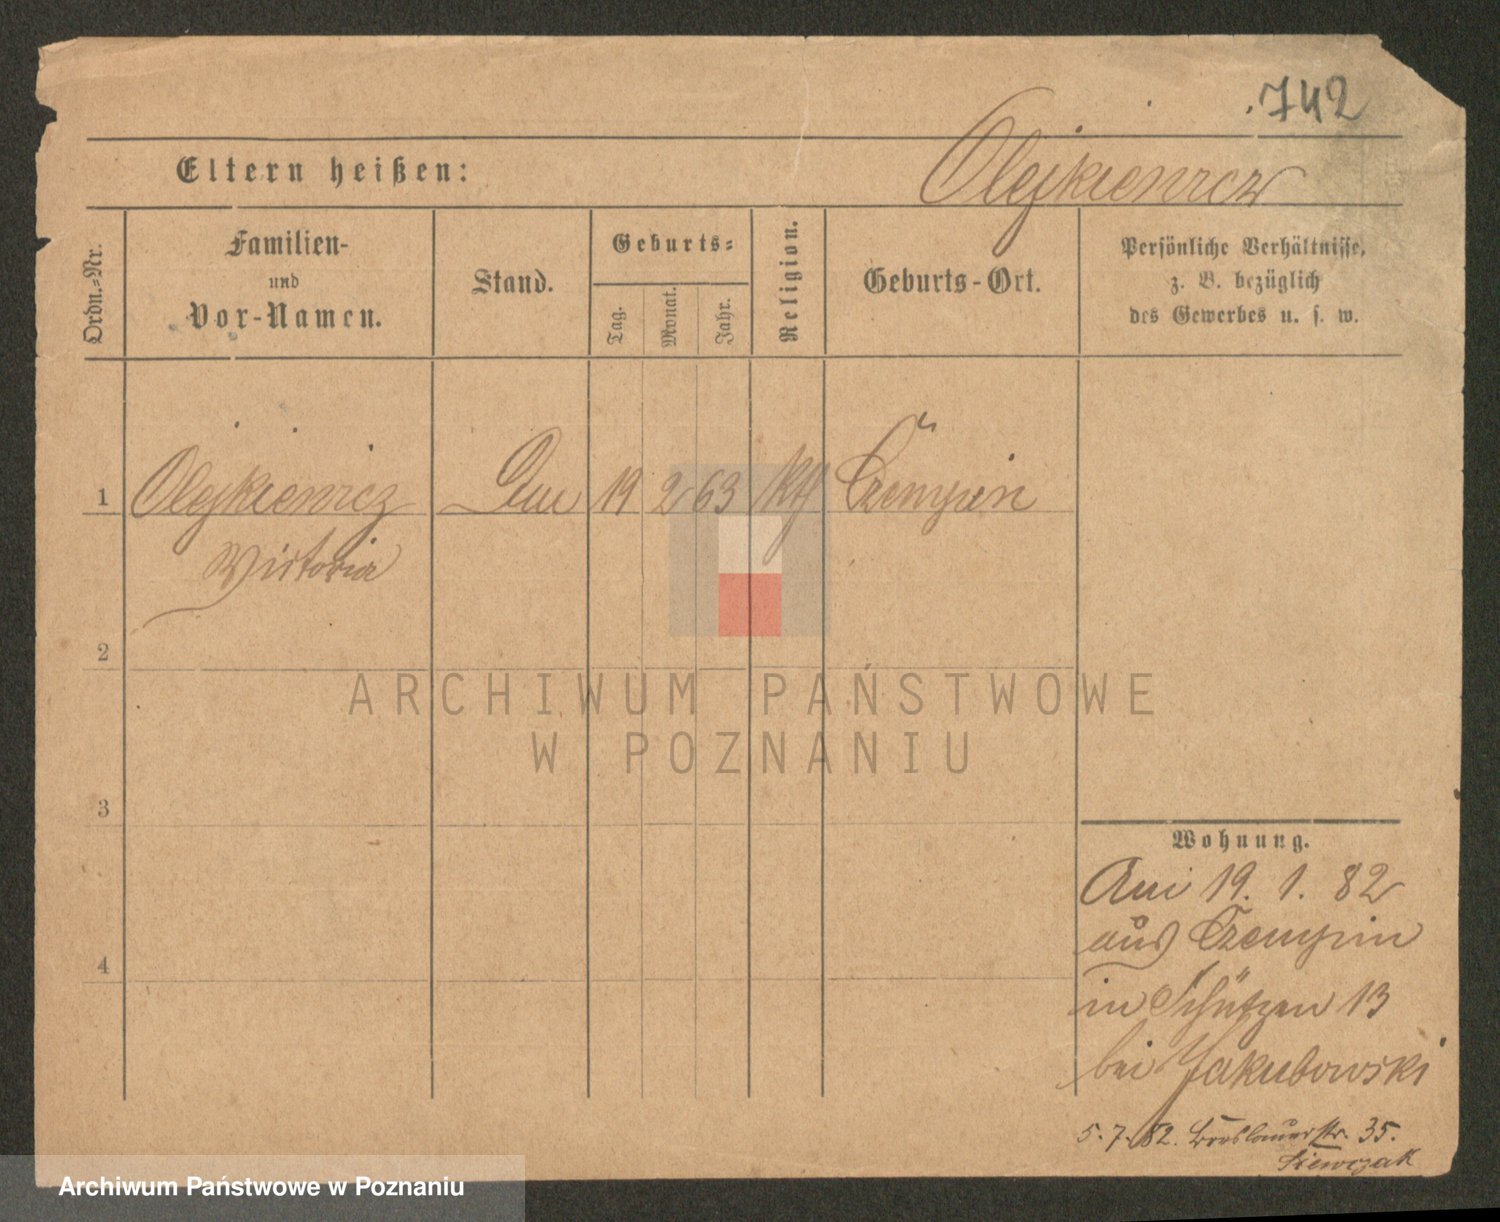 742
Eltern heißen:
Olejkiewicz
Ordn.=Nr.
Familien-
und
Vor-Namen.
Stand.
Geburts=
Tag.
Monat.
Jahr.
Religion.
Geburts-Ort.
Persönliche Verhältnisse,
z. B. bezüglich
des Gewerbes u. s. w.
1
Olejkiewicz
19
2
63
Kth
Czempin
Victoria
2
ARCHIWUM PAŃSTWOWE
W POZNANIU
3
Wohnung.
19. 1. 82
aus Czempin
4
in Schützen 13
bei Jakubowski
5. 7. 82. Breslauerstr. 35.
Archiwum Państwowe w Poznaniu